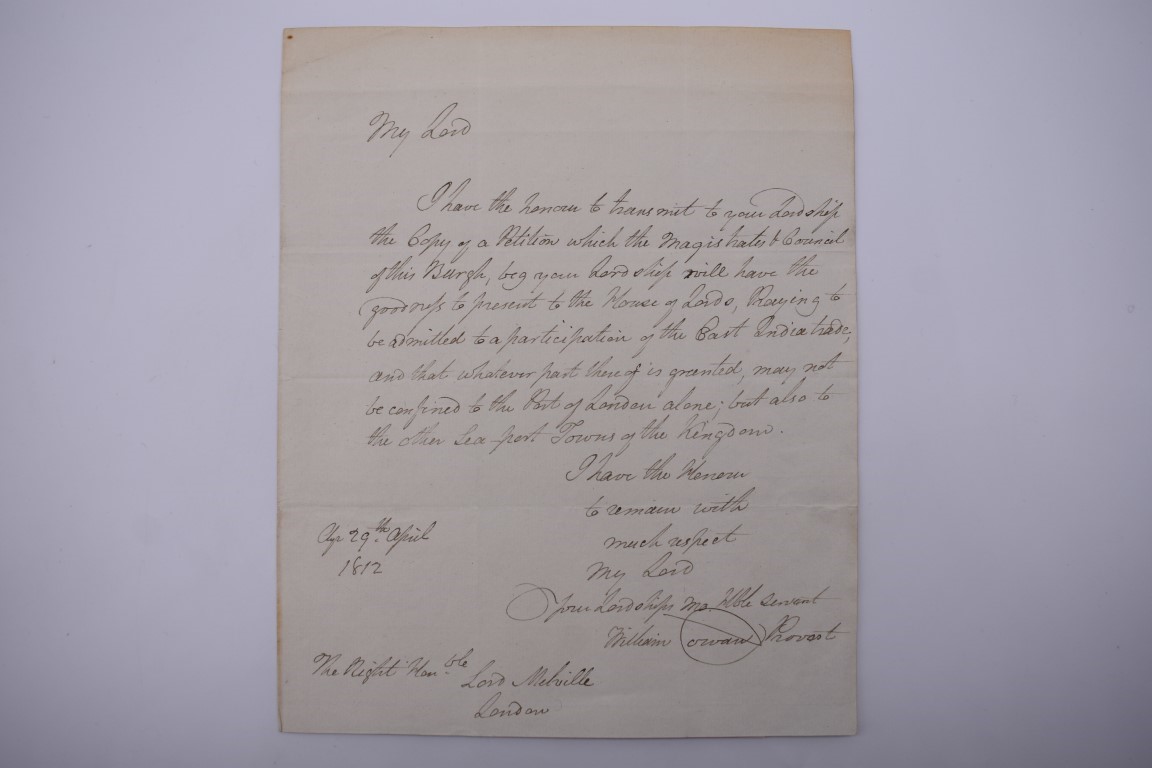 My Lord
I have the honour to transmit to your Lordship
the Copy of a Petition which the Magistrates & Council
of this Burgh, beg your Lordship will have the
goodness to present to the House of Lords, Praying to
be admitted to a participation of the East India trade,
and that whatever part thereof is granted, may not
be confined to the Port of London alone; but also to
the other Sea port Towns of the Kingdom.
I have the Honour
to remain with
much respect
My Lord
Your Lordships mo Hble servant
William Cowan Provost
Ayr 29th April
1812
The Right Honble
Lord Melville
London